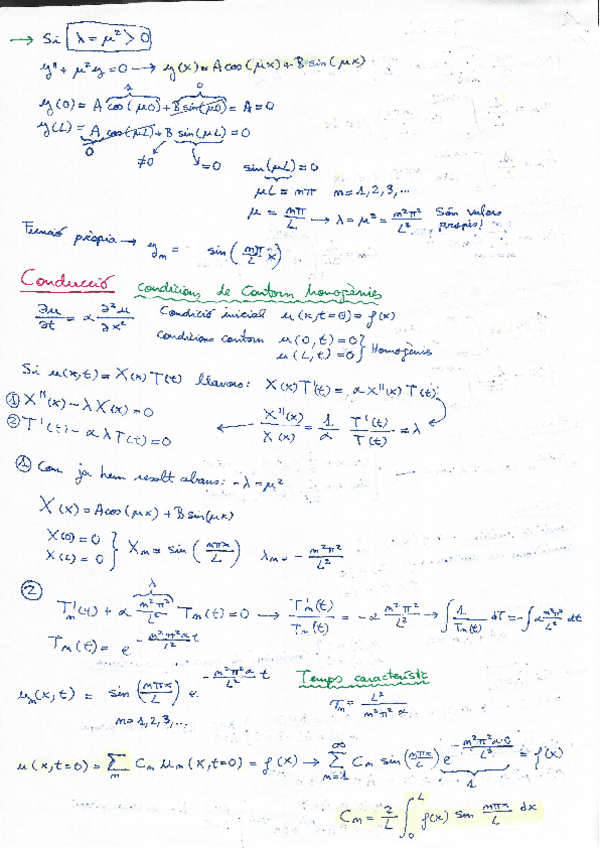 → Si λ = μ² > 0
y'' + μ²y = 0 → y(x) = A cos(μx) + B sin(μx)
1 0
y(0) = A cos(μ0) + B sin(μ0) = A = 0
y(L) = A cos(μL) + B sin(μL) = 0
0 ≠0 =0 sin(μL) = 0
μL = nπ n = 1, 2, 3, ...
μ = nπ/L → λ = μ² = n²π²/L² Són valors propis!
Funció pròpia → yn = sin(nπ/L x)
Conducció condicions de contorn homogènies
∂u/∂t = α ∂²u/∂x² Condició inicial u(x,t=0) = f(x)
Condicions contorn u(0,t) = 0
u(L,t) = 0 } Homogènies
Si u(x,t) = X(x)T(t) llavors: X(x)T'(t) = αX''(x)T(t)
① X''(x) - λX(x) = 0
② T'(t) - αλT(t) = 0 ← X''(x)/X(x) = 1/α T'(t)/T(t) = λ
① Com ja hem resolt abans: -λ = μ²
X(x) = A cos(μx) + B sin(μx)
X(0) = 0
X(L) = 0 } Xn = sin(nπx/L) λn = - n²π²/L²
λ
② Tn'(t) + α n²π²/L² Tn(t) = 0 → Tn'(t)/Tn(t) = -α n²π²/L² → ∫ 1/Tn(t) dT = -∫ α n²π²/L² dt
Tn(t) = e^(- n²π²α/L² t)
un(x,t) = sin(nπx/L) e^(- n²π²α/L² t) Temps característic
n = 1, 2, 3, ... τn = L²/n²π²α
u(x,t=0) = Σn Cn un(x,t=0) = f(x) → Σ(n=1, ∞) Cn sin(nπx/L) e^(- n²π²α·0/L²) = f(x)
1
Cn = 2/L ∫₀ᴸ f(x) sin nπx/L dx